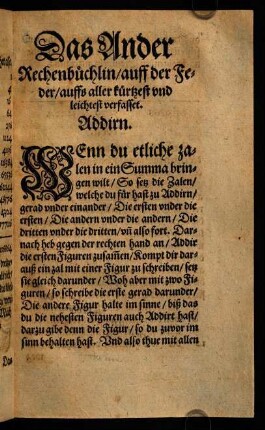 Das Ander
Rechenbüchlin/auff der Fe-
der/auffs aller kürtzest vnd
leichtest verfasset.
Addirn.
WEnn du etliche za-
len in ein Summa brin-
gen wilt/So setz die Zalen/
welche du für hast zu Addirn/
gerad vnder einander/Die ersten vnder die
ersten/Die andern vnder die andern/Die
dritten vnder die dritten/vñ also fort. Dar-
nach heb gegen der rechten hand an/Addir
die ersten Figuren zusam̃en/Kompt dir dar-
auß ein zal mit einer Figur zu schreiben/setz
sie gleich darunder/Woh aber mit zwo Fi-
guren/so schreibe die erste gerad darunder/
Die andere Figur halte im sinne/biß das
du die nehesten Figuren auch Addirt hast/
darzu gibe denn die Figur/so du zuvor im
sinn behalten hast. Vnd also thue mit allen
Das